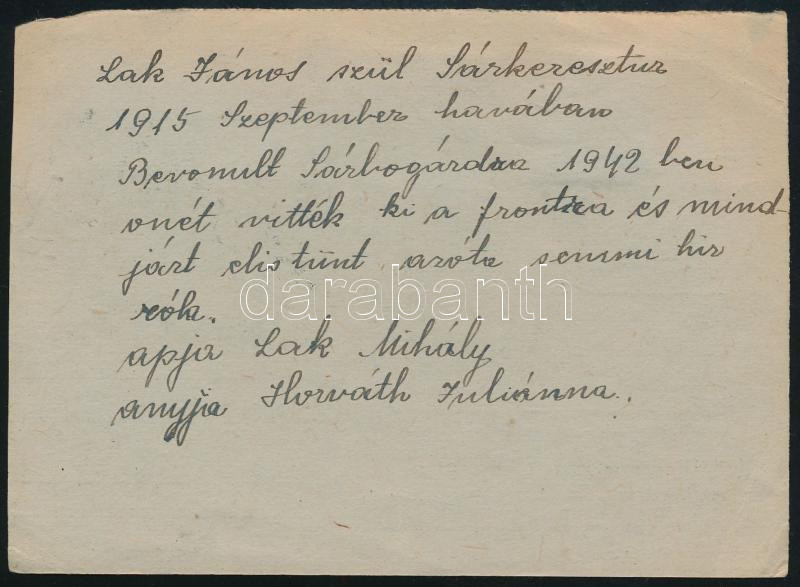 Lak János szül Sárkeresztur
1915 Szeptember havában
Bevonult Sárbogárdra 1942 ben
onét vitték ki a frontra és mind-
járt elis tünt azóta semmi hir
róla.
darabanth
apja Lak Mihály
anyja Horváth Juliánna.